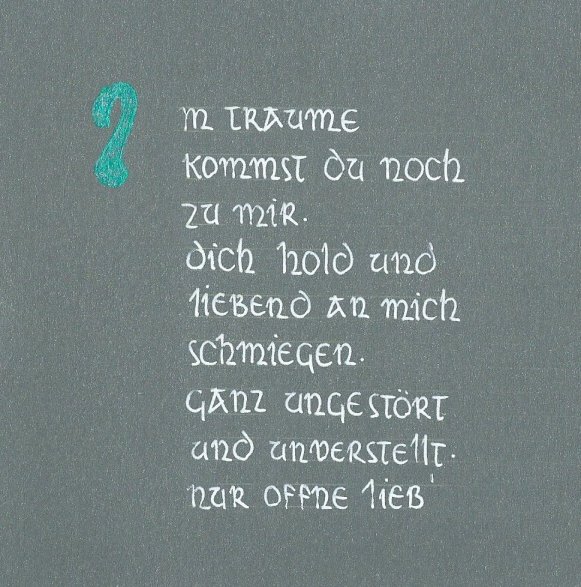 Im traume
kommst du noch
zu mir.
dich hold und
liebend an mich
schmiegen.
ganz ungestört
und unverstellt.
nur offne lieb'